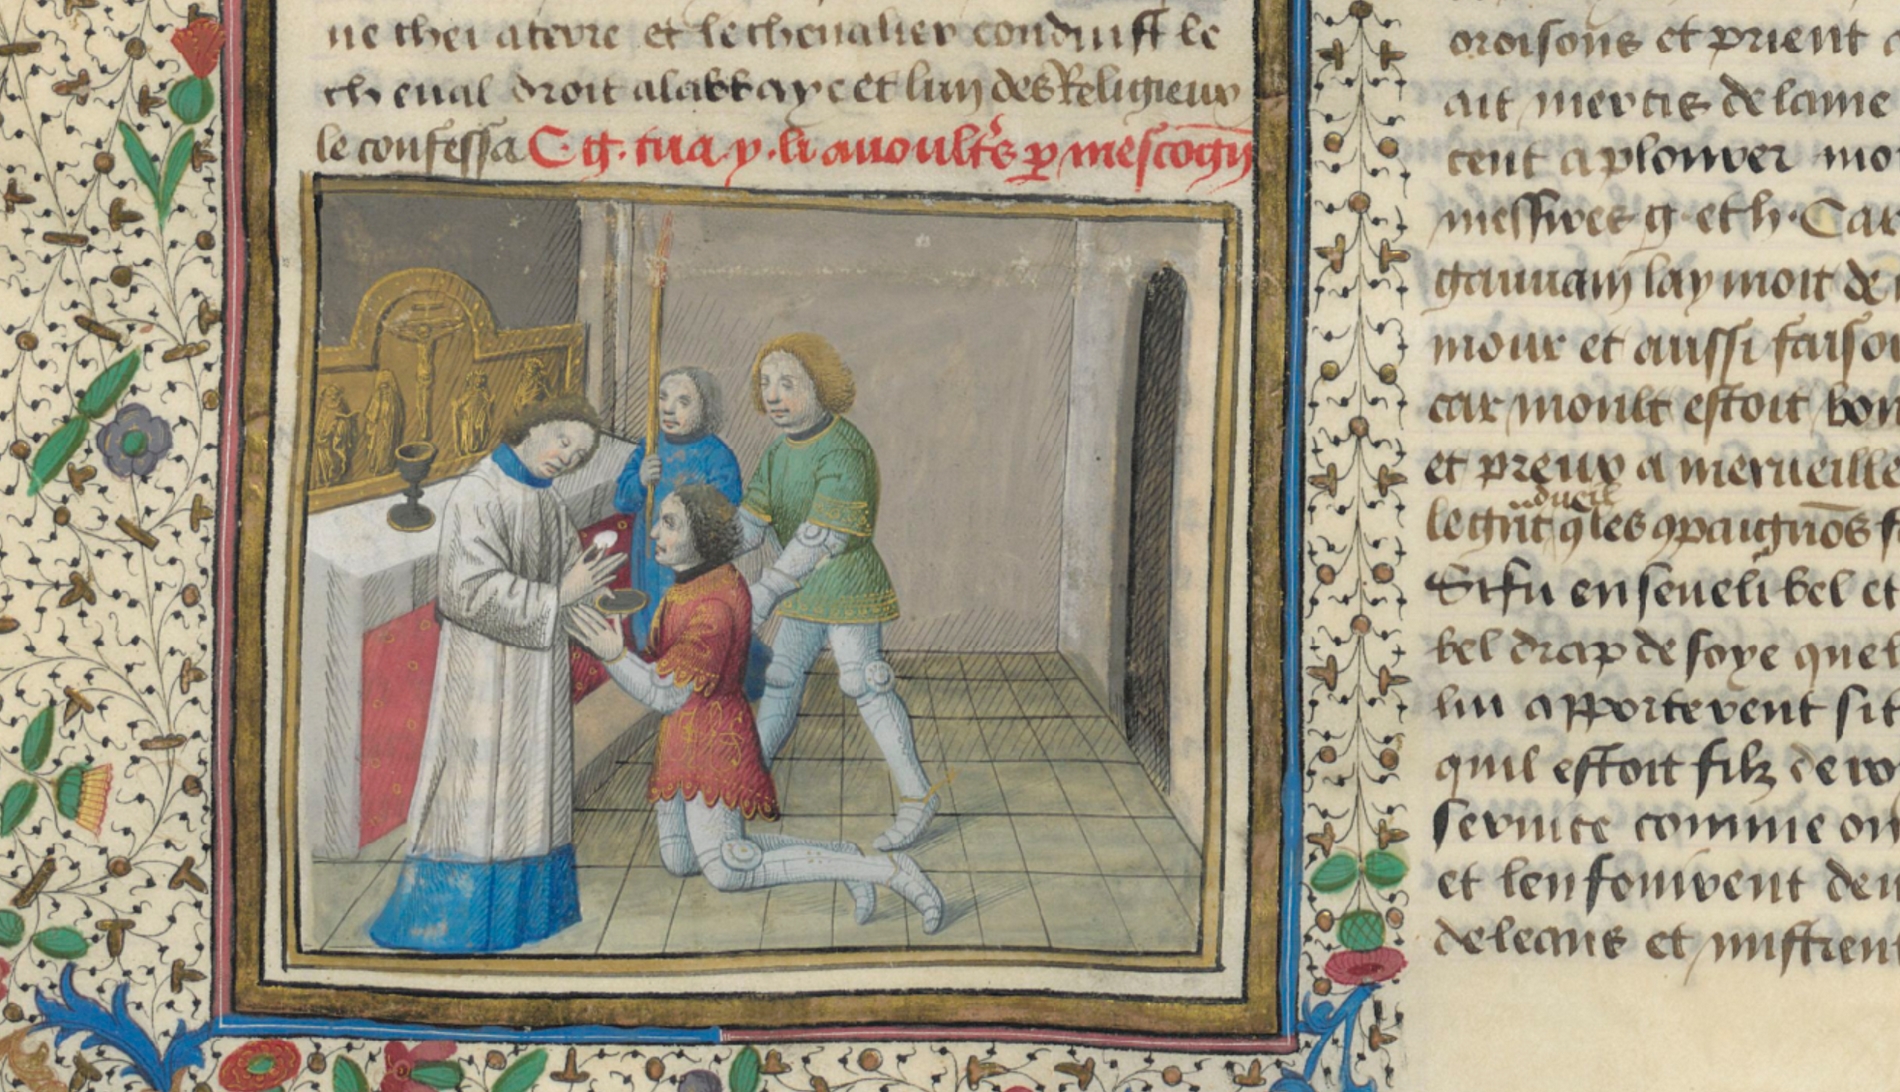 ne chei a terre et le chevalier conduist le
cheval droit alabbaye et lun des Religieux
le confessa C. g. tua. y. li avoultrs p mescogn
oroisons et prient
ait mercis de lame
cent a plourer mo
messires g. et h. Car
gauuain laymoit de
mour et aussi faiso
car moult estoit bon
et preux a merueille
dueil
le grnt q les gpaignons f
Si fu enseueli bel et
bel drap de soye que
lui apporterent sit
quil estoit filz de ro
seruice comme on
et lenfouirent de
de leans et mistrent